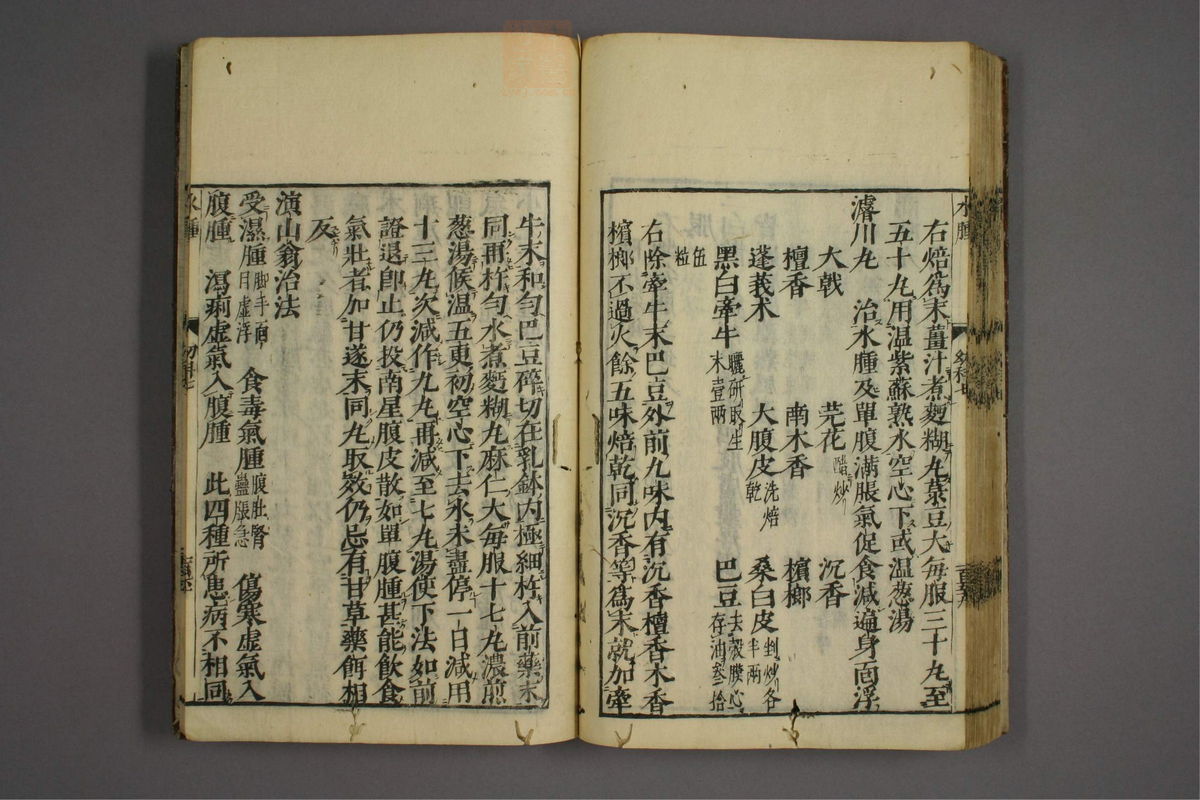 水腫
右焙爲末薑汁煮麪糊丸菉豆大每服三十丸至
五十丸用温紫蘇熟水空心下或温葱湯
濬川丸 治水腫及單腹滿脹氣促食減遍身面浮
大戟 芫花醋炒 沉香
檀香 南木香 檳榔
蓬莪朮 大腹皮洗焙乾 桑白皮剉炒各半兩
黑白牽牛曬研取生末壹兩 巴豆去殼膜心存油叁拾
伍粒
右除牽牛末巴豆外前九味內有沉香檀香木香
檳榔不過火餘五味焙乾同沉香等爲末就加牽
牛末和勻巴豆碎切在乳鉢內極細杵入前藥末
同再杵勻水煮麪糊丸麻仁大每服十七丸濃煎
葱湯候温五更初空心下去水未盡停一日減用
十三丸次減作九丸再減至七丸湯使下法如前
證退卽止仍投南星腹皮散如單腹腫甚能飲食
氣壯者加甘遂末同丸取效仍忌有甘草藥餌相
反
演山翁治法
受濕腫脚手面目虛浮 食毒氣腫腹肚腎蠱脹急 傷寒虛氣入
腹腫 瀉痢虛氣入腹腫 此四種所患病不相同
水腫